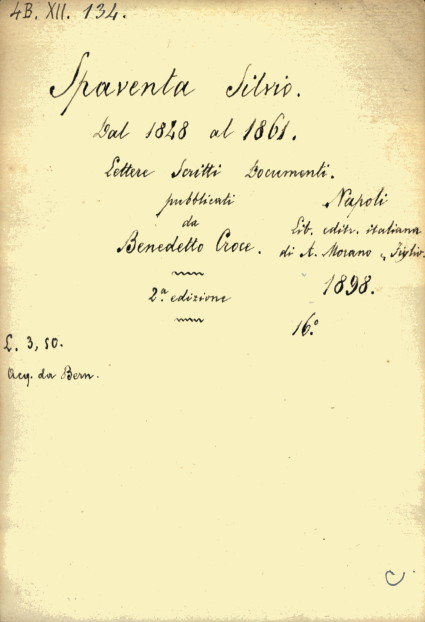 4B. XII. 134.
Spaventa Silvio.
Dal 1848 al 1861.
Lettere Scritti Documenti.
pubblicati
da
Benedetto Croce.
2ª edizione
Napoli
Lib. editr. italiana
di A. Morano e Figlio.
1898.
16.°
L. 3,50.
Acq. da Bern.
C